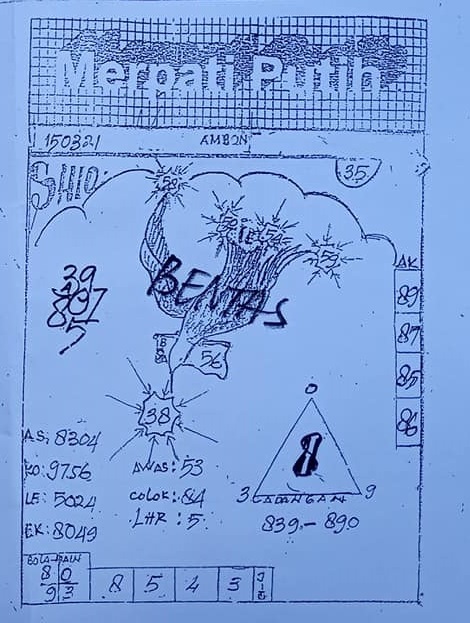 Merpati Putih
150321
AMBON
35
SHIO:
58
BENTAS
56
38
39
807
5
AK
89
87
85
86
AS: 8304
KO: 9756
LE: 5024
EK: 8049
AWAS: 53
COLOK: 84
LHR: 5
0
8
3 CADANGAN 9
839 - 890
BOLA-MAIN
8 0
9 3
8 5 4 3